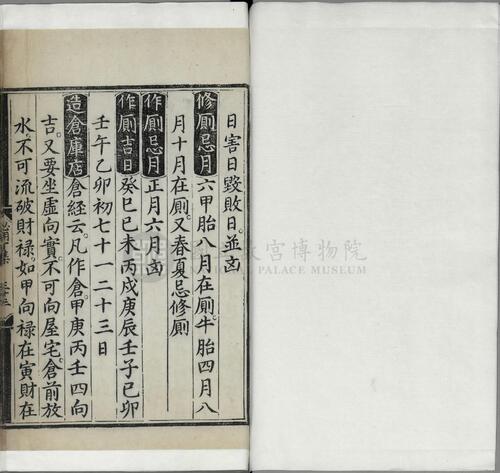 日害日毁敗日並凶
修厠忌月六甲胎八月在厠牛胎四月八
月十月在厠又春夏忌修厠
作厠忌月正月六月凶
作厠吉日癸巳己未丙戌庚辰壬子己卯
壬午乙卯初七十一二十三日
造倉庫店倉經云凡作倉甲庚丙壬四向
吉又要坐虛向實不可向屋宅倉前放
水不可流破財禄如甲向禄在寅財在
故宮博物院
NATIONAL PALACE MUSEUM